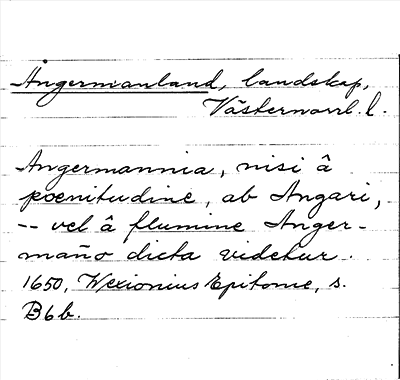 Ångermanland, landskap,
Västernorrl. l.
Angermannia, nisi â
poenitudine, ab Angari,
-- vel â flumine Anger-
maño dicta videtur.
1650, Wexionius Epitome, s.
B6b.